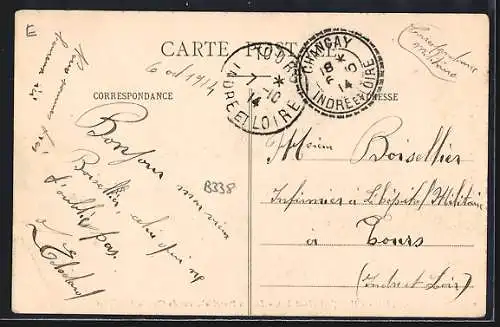 E
CARTE POSTALE
CORRESPONDANCE
6 oct 1914
TOURS
7-10
14
INDRE ET LOIRE
CHANÇAY
18 *
6-10
14
INDRE ET LOIRE
Correspondance
militaire
Bonjour mon vieux
Boisellier, celui qui ne
t'oublie pas
B338
Monsieur Boisellier
Infirmier à L'hôpital Militaire
à
Tours
(Indre et Loire)